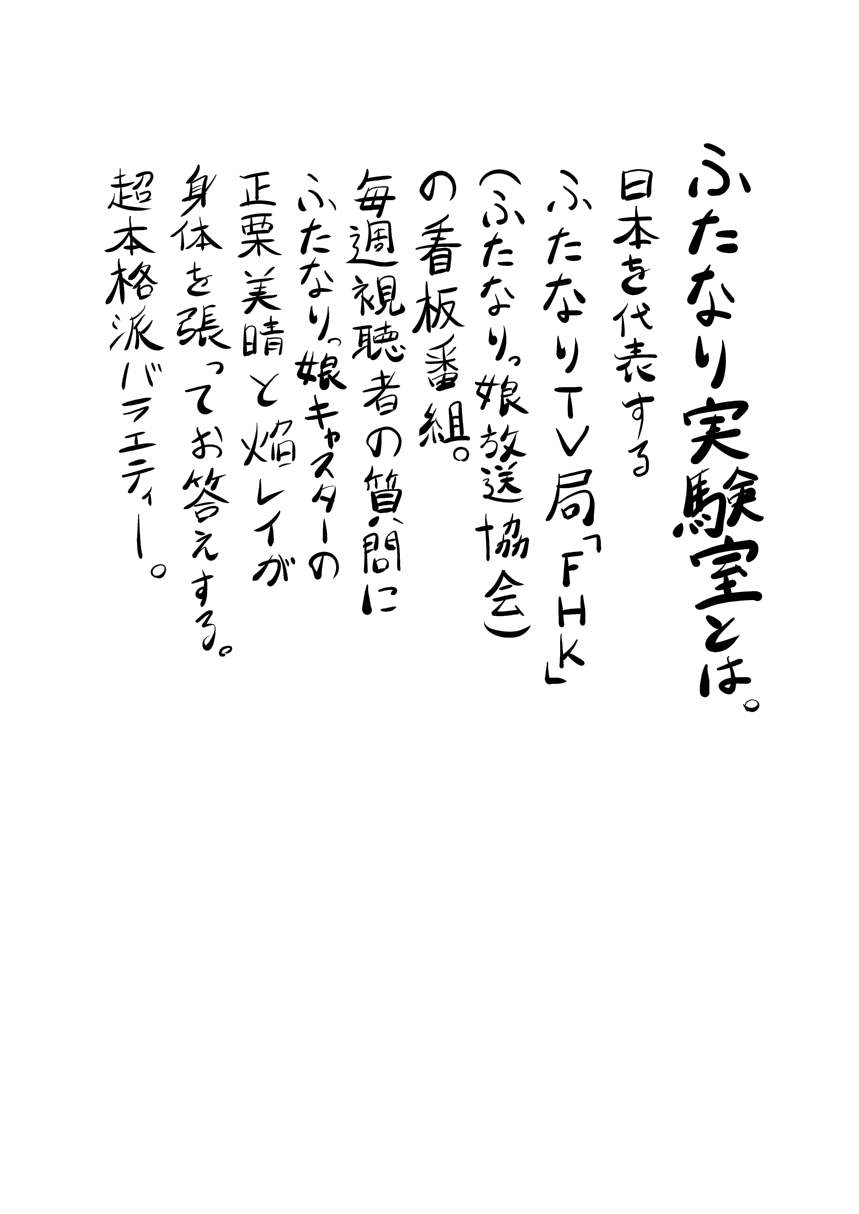 ふたなり実験室とは。
日本を代表する
ふたなりTV局「FHK」
(ふたなりっ娘放送協会)
の看板番組。
毎週視聴者の質問に
ふたなりっ娘キャスターの
正栗美晴と焔レイが
身体を張ってお答えする。
超本格派バラエティー。